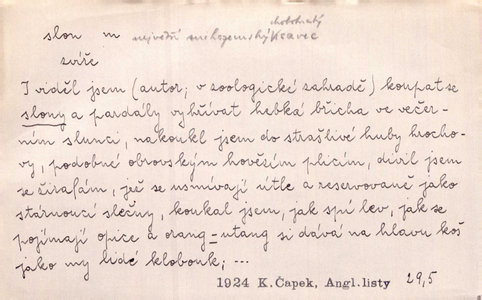 slon m největší suchozemský chobotnatý savec
zvíře
I viděl jsem (autor; v zoologické zahradě) koupat se
slony a pardály vyhřívat hebká břicha ve večer-
ním slunci, nakoukl jsem do strašlivé huby hrocho-
vy, podobné obrovským hovězím plicím, divil jsem
se žirafám, jež se usmívají útle a reservovaně jako
stárnoucí slečny, koukal jsem, jak spí lev, jak se
pojímají opice a orang-utang si dává na hlavu koš
jako my lidé klobouk; ...
1924 K. Čapek, Angl. listy 29,5